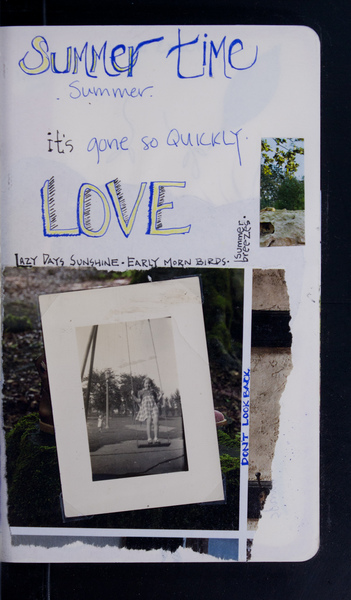 Summer time
Summer.
it's gone so QUICKLY.
LOVE
LAZY DAYS SUNSHINE. EARLY MORN BIRDS.
Summer
breezes.
DONT LOOK BACK